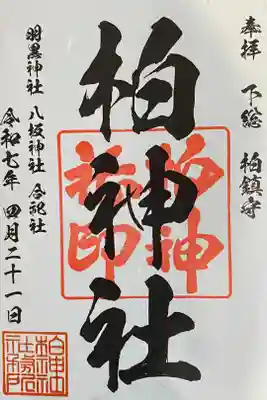 奉拝 下総 柏鎮守
柏神社
羽黒神社 八坂神社 合祀社
令和七年 四月二十一日
柏神
社印